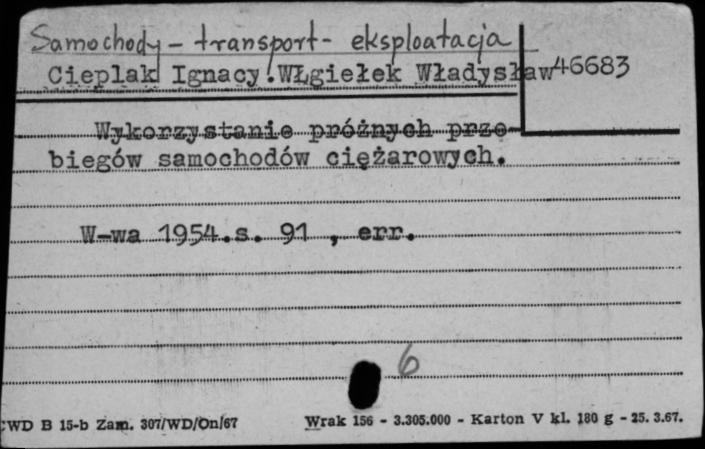 Samochody - transport - eksploatacja
Cieplak Ignacy. Węgiełek Władysław 46683
Wykorzystanie próżnych prze-
biegów samochodów ciężarowych.
W-wa 1954.s. 91 , err.
6
CWD B 15-b Zam. 307/WD/On/67 Wrak 156 - 3.305.000 - Karton V kl. 180 g - 25. 3.67.